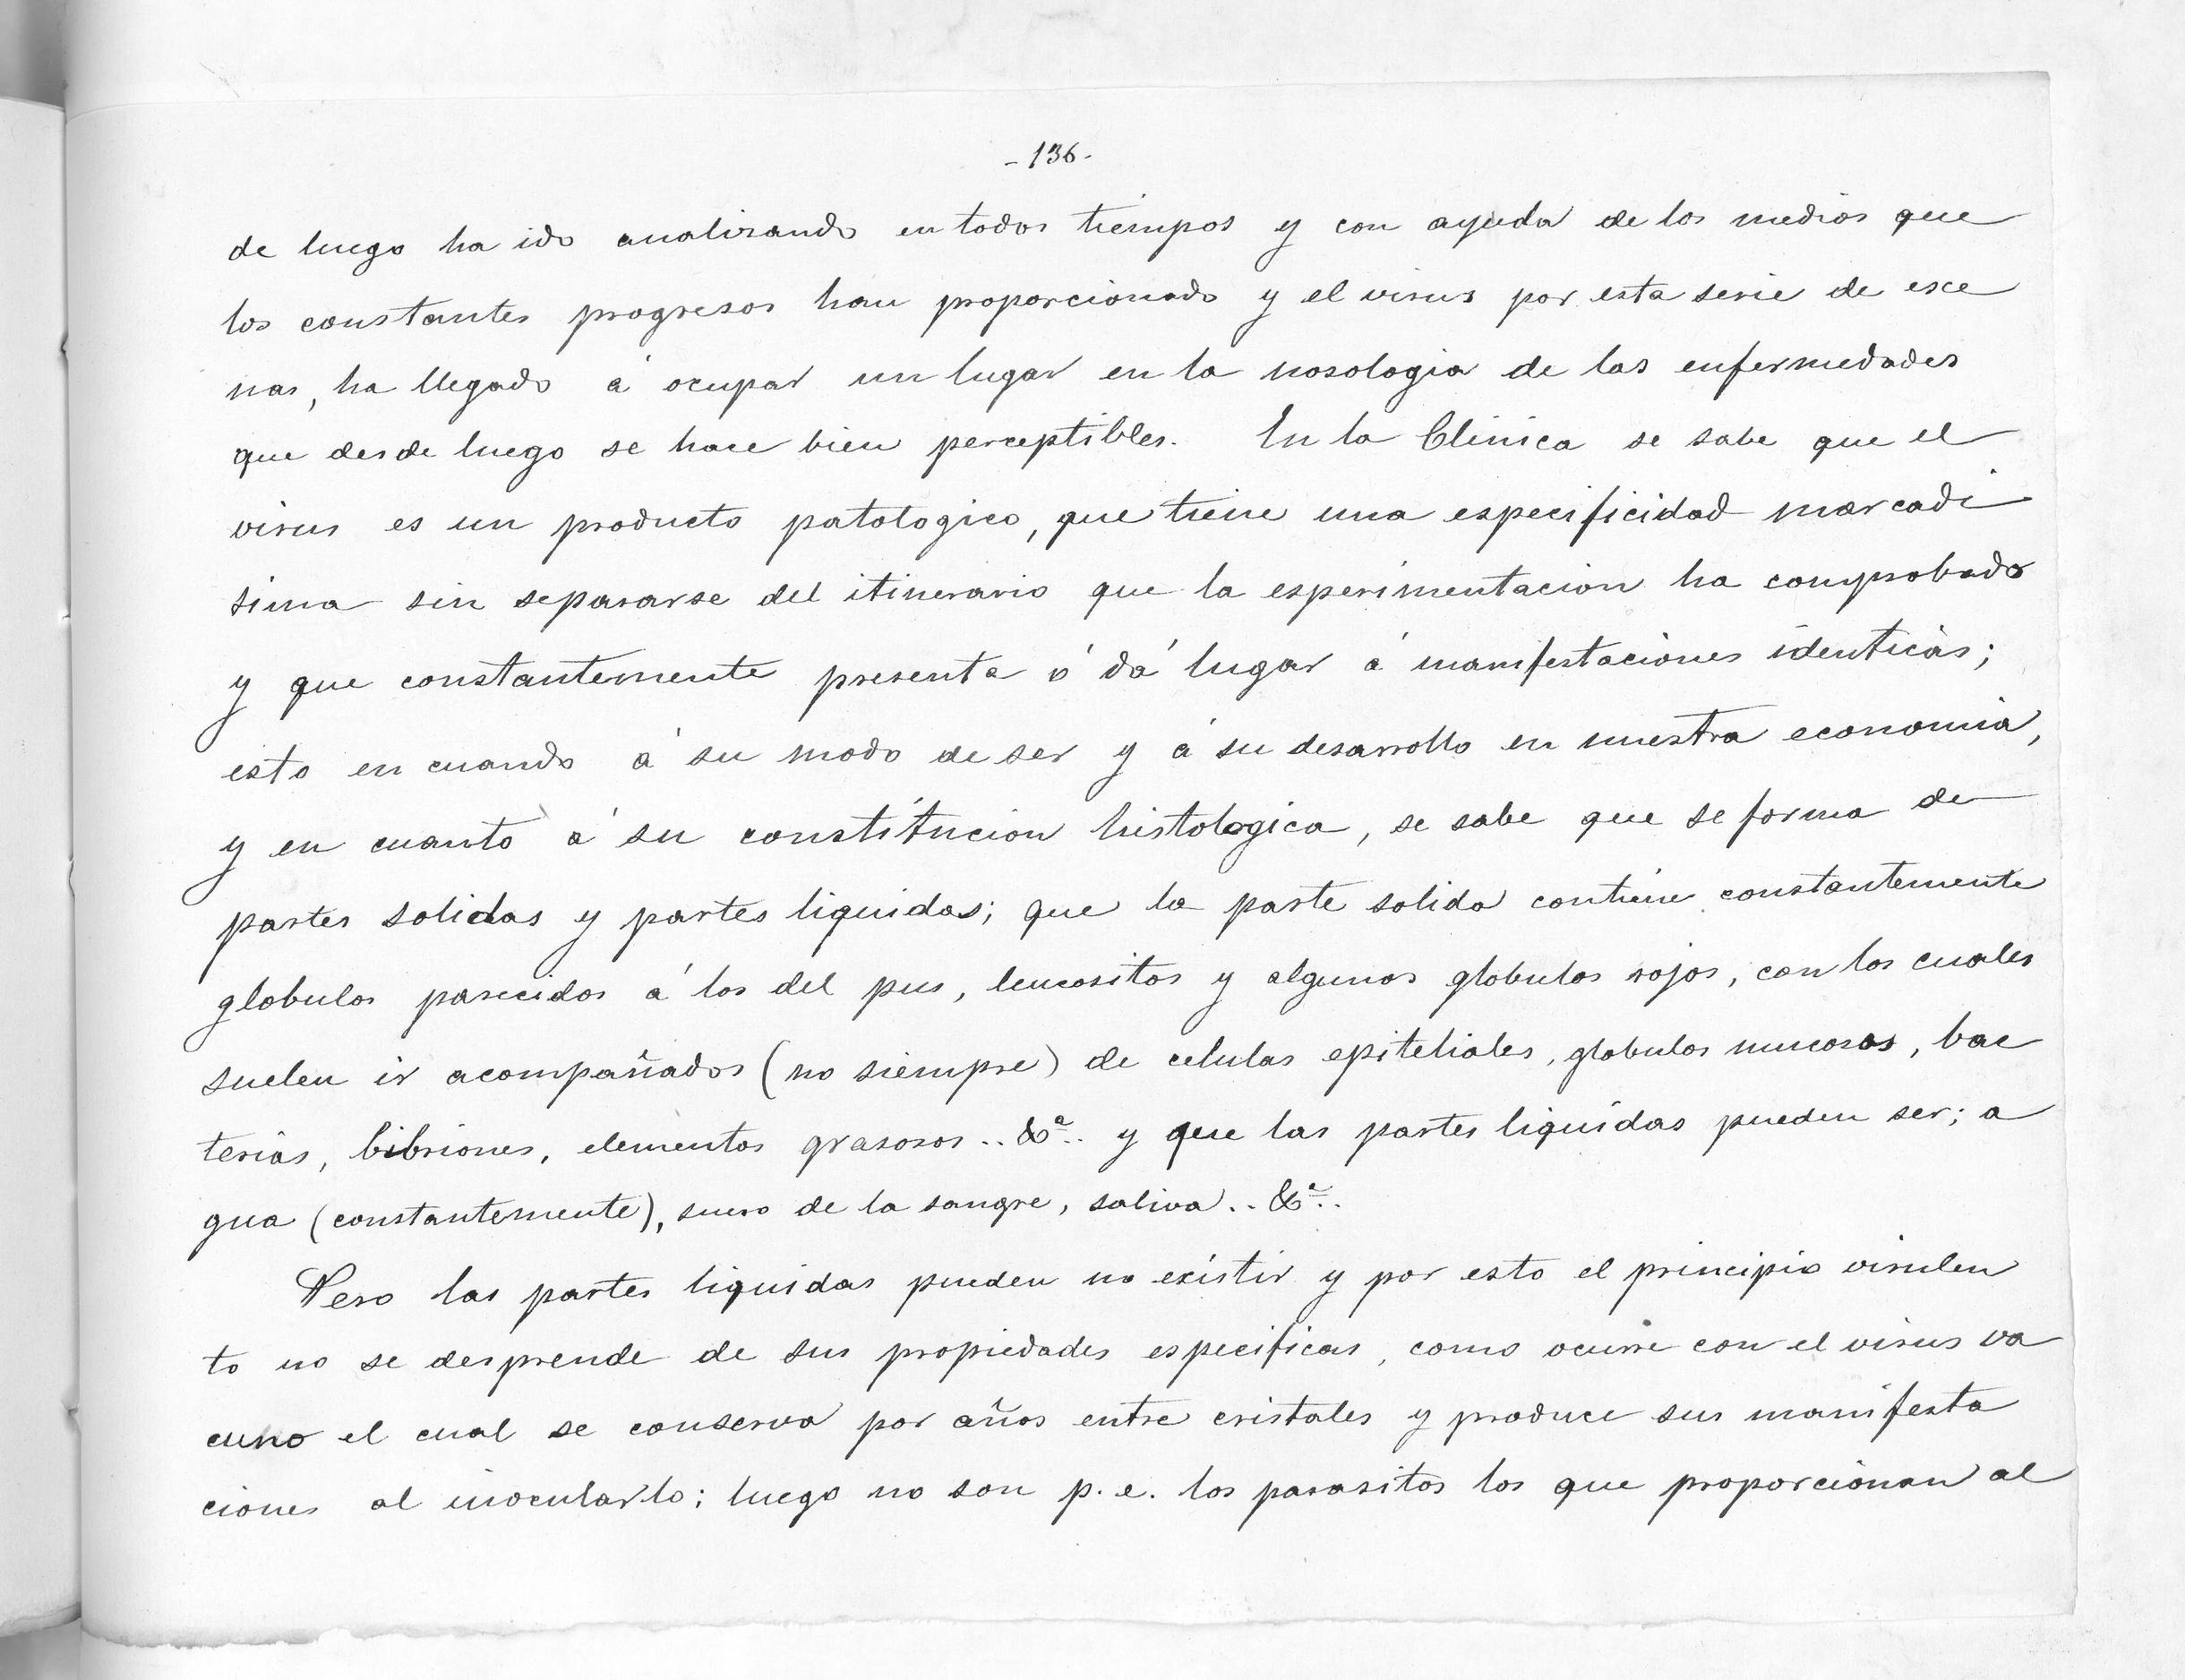 - 136 -
de luego ha ido analisando en todos tiempos y con ayuda de los medios que
los constantes progresos han proporcionado y el virus por esta serie de esce
nas, ha llegado á ocupar un lugar en la nosologia de las enfermedades
que desde luego se hace bien perceptibles. En la Clinica se sabe que el
virus es un producto patologico, que tiene una especificidad marcadi
sima sin separarse del itinerario que la esperimentacion ha comprobado
y que constantemente presenta ó dá lugar á manifestaciones identicas;
esto en cuando á su modo de ser y á su desarrollo en nuestra economia,
y en cuanto á su constitucion histologica, se sabe que se forma de
partes solidas y partes liquidas; que la parte solida contiene constantemente
globulos parecidos á los del pus, leucositos y algunos globulos rojos, con los cuales
suelen ir acompañados (no siempre) de celulas epiteliales, globulos mucosos, bac
terias, bibriones, elementos grasosos .. &ª .. y que las partes liquidas pueden ser; a
gua (constantemente), suero de la sangre, saliva .. &ª ..
Pero las partes liquidas pueden no existir y por esto el principio virulen
to no se desprende de sus propiedades especificas, como ocurre con el virus va
cuno el cual se conserva por años entre cristales y produce sus manifesta
ciones al inocularlo; luego no son p. e. los parasitos los que proporcionan al